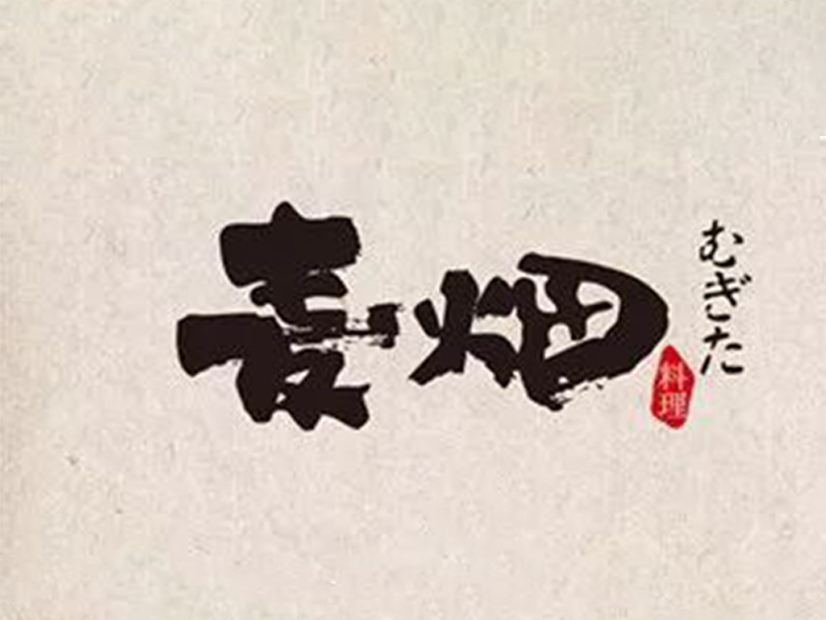 麦畑
むぎた
料理